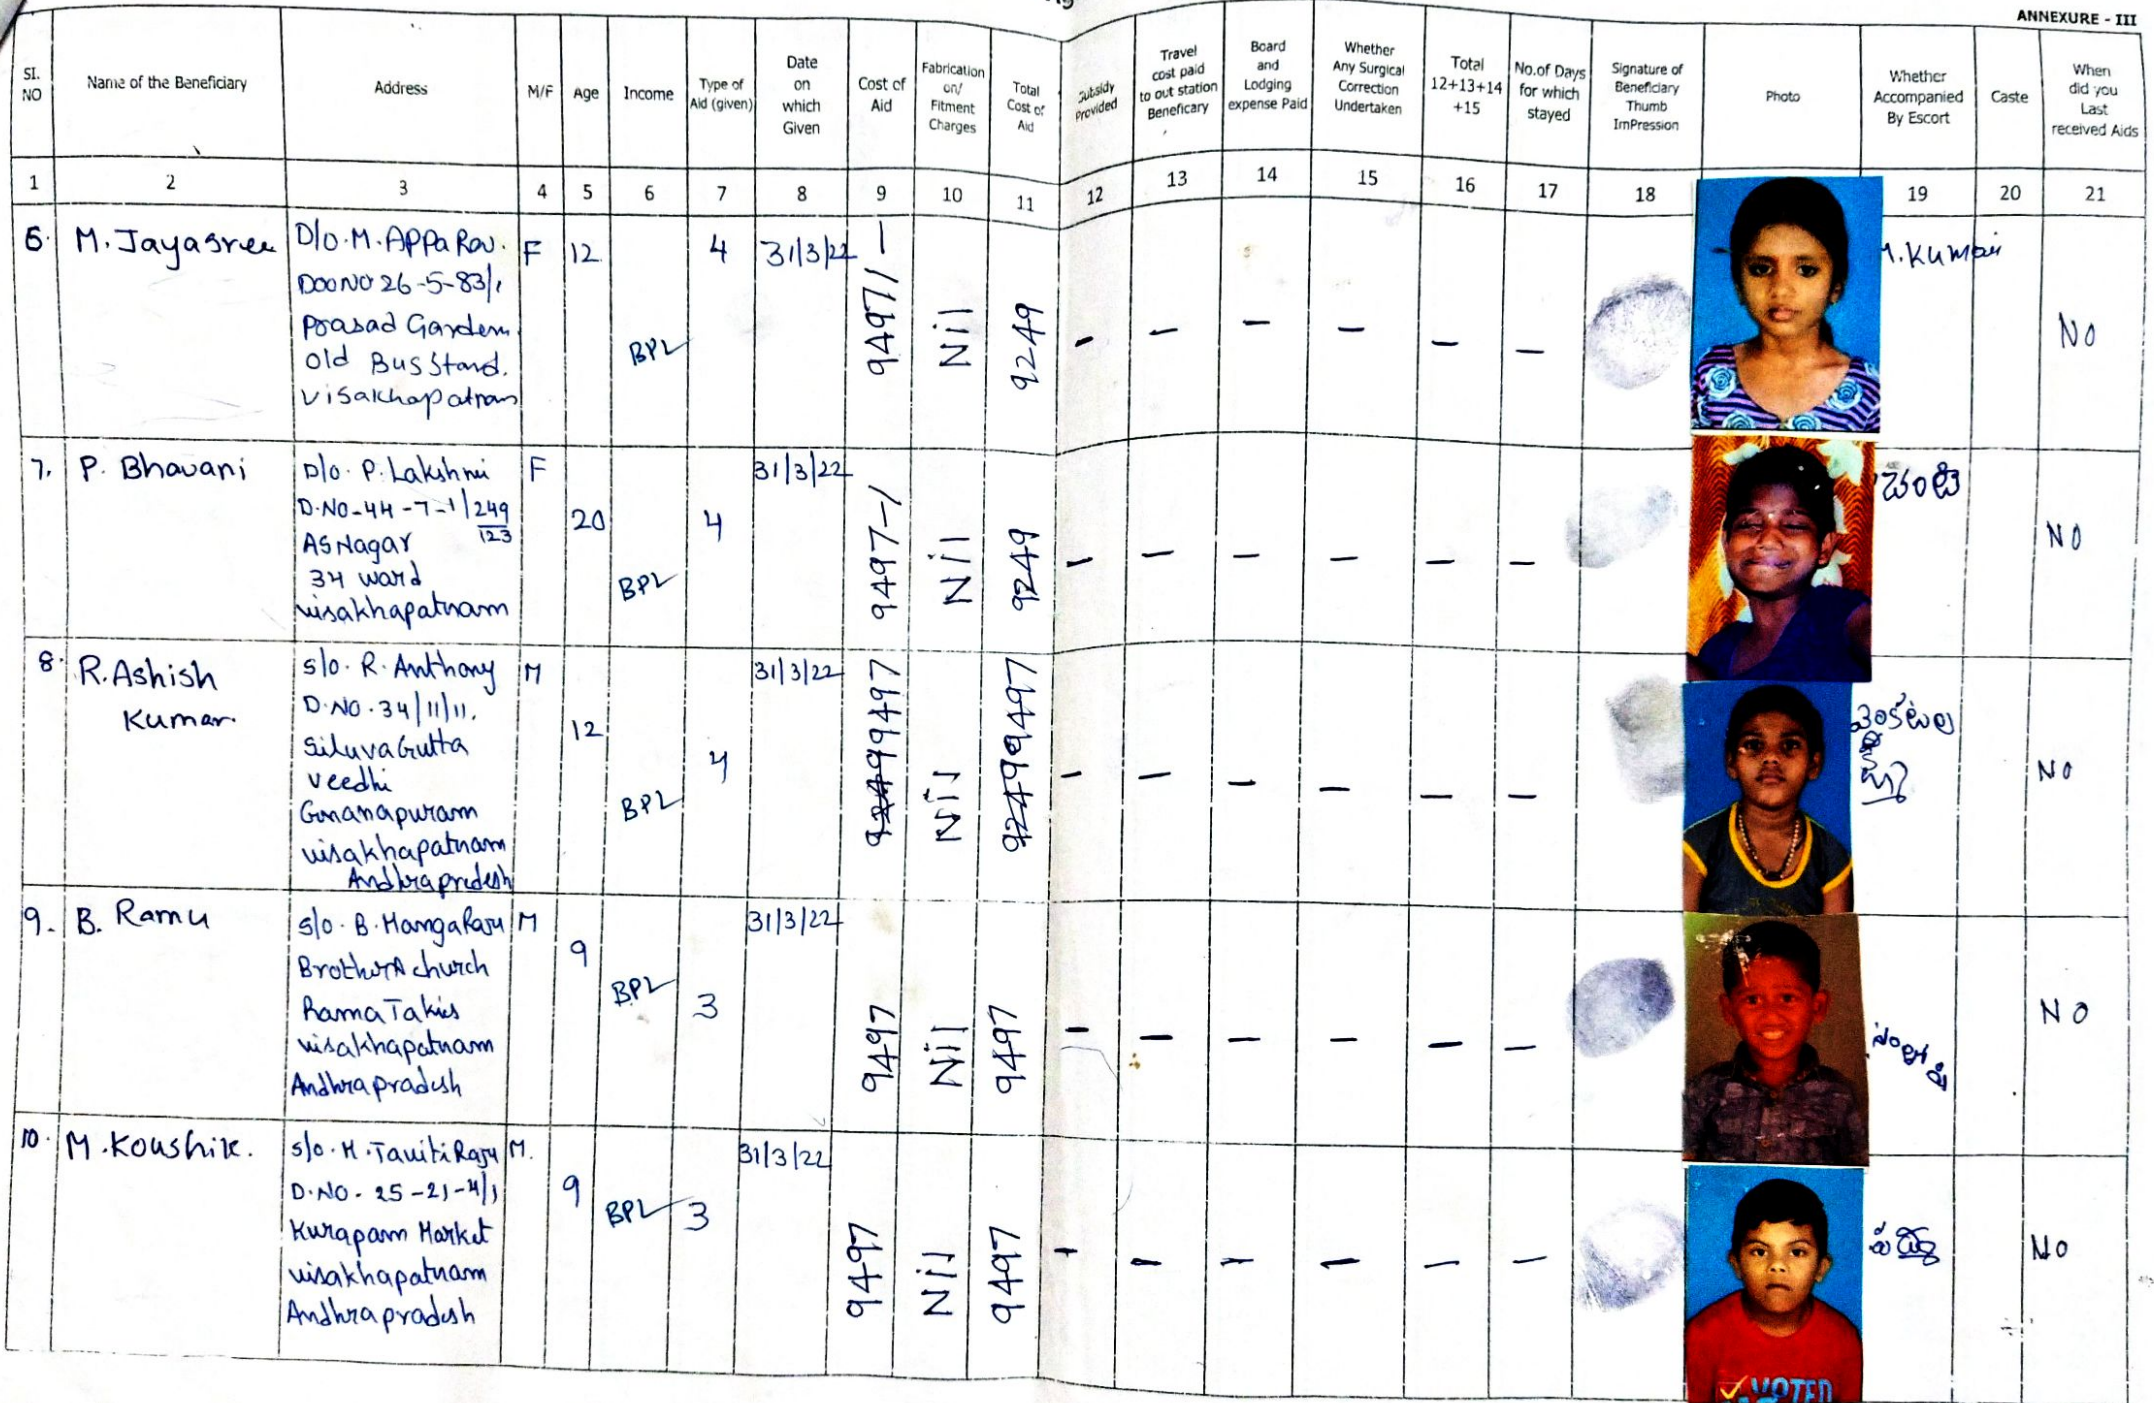 ANNEXURE - III
SI. NO
Name of the Beneficiary
Address
M/F
Age
Income
Type of Aid (given)
Date on which Given
Cost of Aid
Fabrication on/ Fitment Charges
Total Cost of Aid
Subsidy Provided
Travel cost paid to out station Beneficary
Board and Lodging expense Paid
Whether Any Surgical Correction Undertaken
Total 12+13+14 +15
No.of Days for which stayed
Signature of Beneficiary Thumb ImPression
Photo
Whether Accompanied By Escort
Caste
When did you Last received Aids
1 2 3 4 5 6 7 8 9 10 11 12 13 14 15 16 17 18 19 20 21
6. M. Jayasree
D/o. M. APPa Rov.
DooNO 26-5-83/1
Prasad Garden
old Bus Stand.
visakhapatnam
F 12 BPL 4 31/3/22 9497/- Nil 9249
- - - - - -
M. Kumari
NO
7. P. Bhavani
D/o. P. Lakshmi
D.NO-44-7-1/249
123
ASNagar
34 ward
visakhapatnam
F 20 BPL 4 31/3/22 9497-/ Nil 9249
- - - - - -
NO
8. R. Ashish
Kumar.
S/o. R. Anthony
D.NO.34/11/11.
Siluva Gutta
veedhi
Gnanapuram
visakhapatnam
Andhrapradesh
M 12 BPL 4 31/3/22 9497 Nil 9497
- - - - - -
NO
9. B. Ramu
S/o. B. MangaRaju
Brothers church
Rama Takies
visakhapatnam
Andhra pradesh
M 9 BPL 3 31/3/22 9497 Nil 9497
- - - - - -
NO
10. M. Koushik.
S/o. M. Taviti Raju
D.NO. 25-21-4/1
Kurapam Market
visakhapatnam
Andhra pradesh
M. 9 BPL 3 31/3/22 9497 Nil 9497
- - - - - -
NO
VOTED